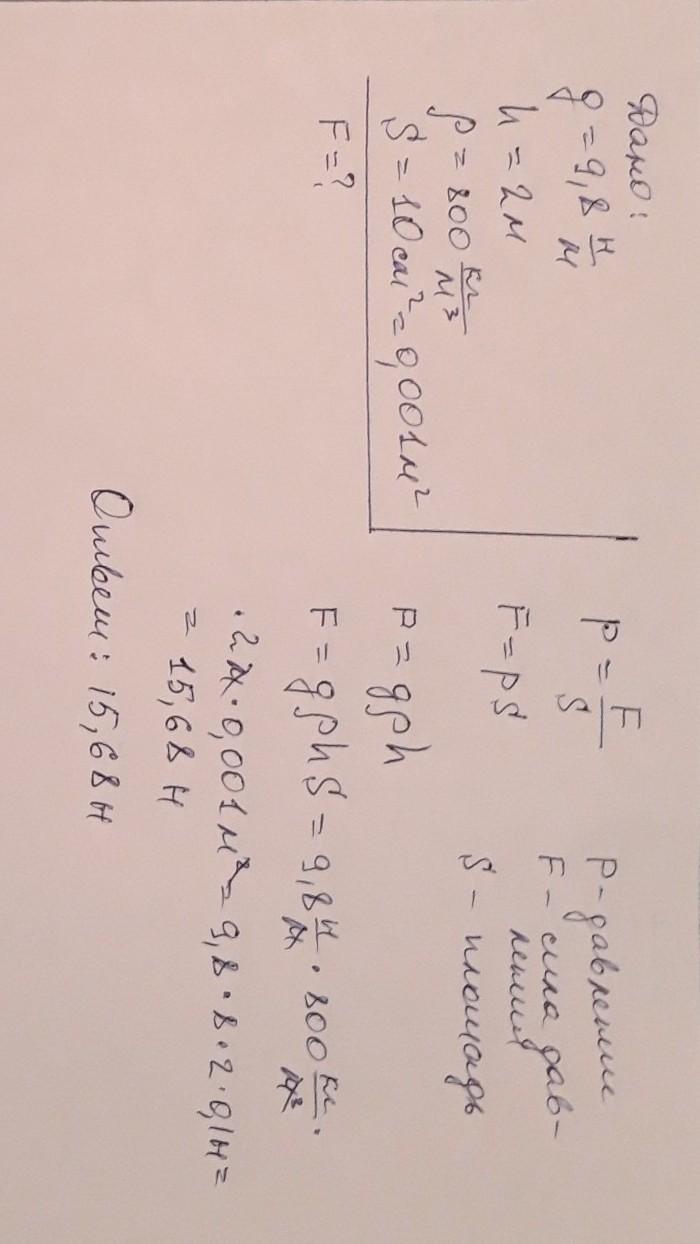 Дано:
g = 9,8 Н/м
h = 2м
ρ = 800 кг/м³
S = 10см² = 0,001м²
F = ?
P = F/S
F = pS
P = gρh
F = gρhS = 9,8 Н/м · 800 кг/м³ ·
· 2м · 0,001м² = 9,8 · 8 · 2 · 0,1Н =
= 15,68 Н
P – давление
F – сила дав-
ления
S – площадь
Ответ: 15,68Н